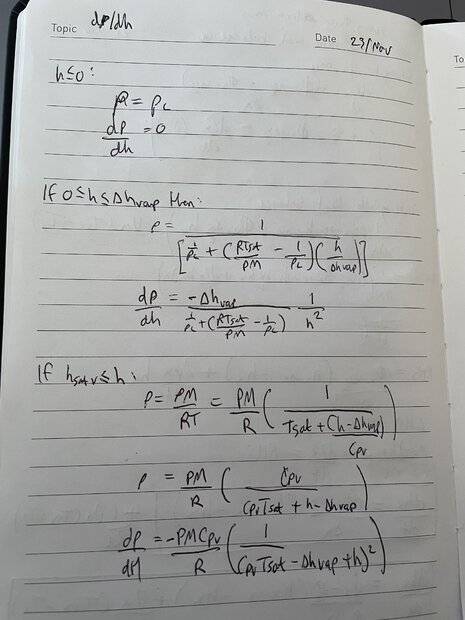 Topic dρ/dh
Date 23/Nov
To
h≤0:
ρ = ρL
dρ/dh = 0
If 0≤h≤Δhvap then:
ρ = 1/[1/ρL + (RTsat/PM - 1/ρL)(h/Δhvap)]
dρ/dh = -Δhvap/(1/ρL + (RTsat/PM - 1/ρL)) 1/h²
If hsatv≤h:
ρ = PM/RT = PM/R (1/(Tsat + (h-Δhvap)/Cpv))
ρ = PM/R (Cpv/(CpvTsat + h - Δhvap))
dρ/dH = -PMCpv/R (1/(CpvTsat - Δhvap + h)²)